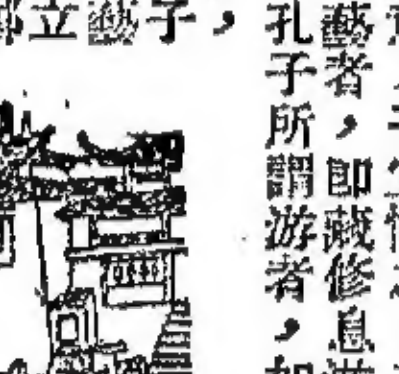 藝者，即藏修息游
孔子所謂游者，如
立藝子，